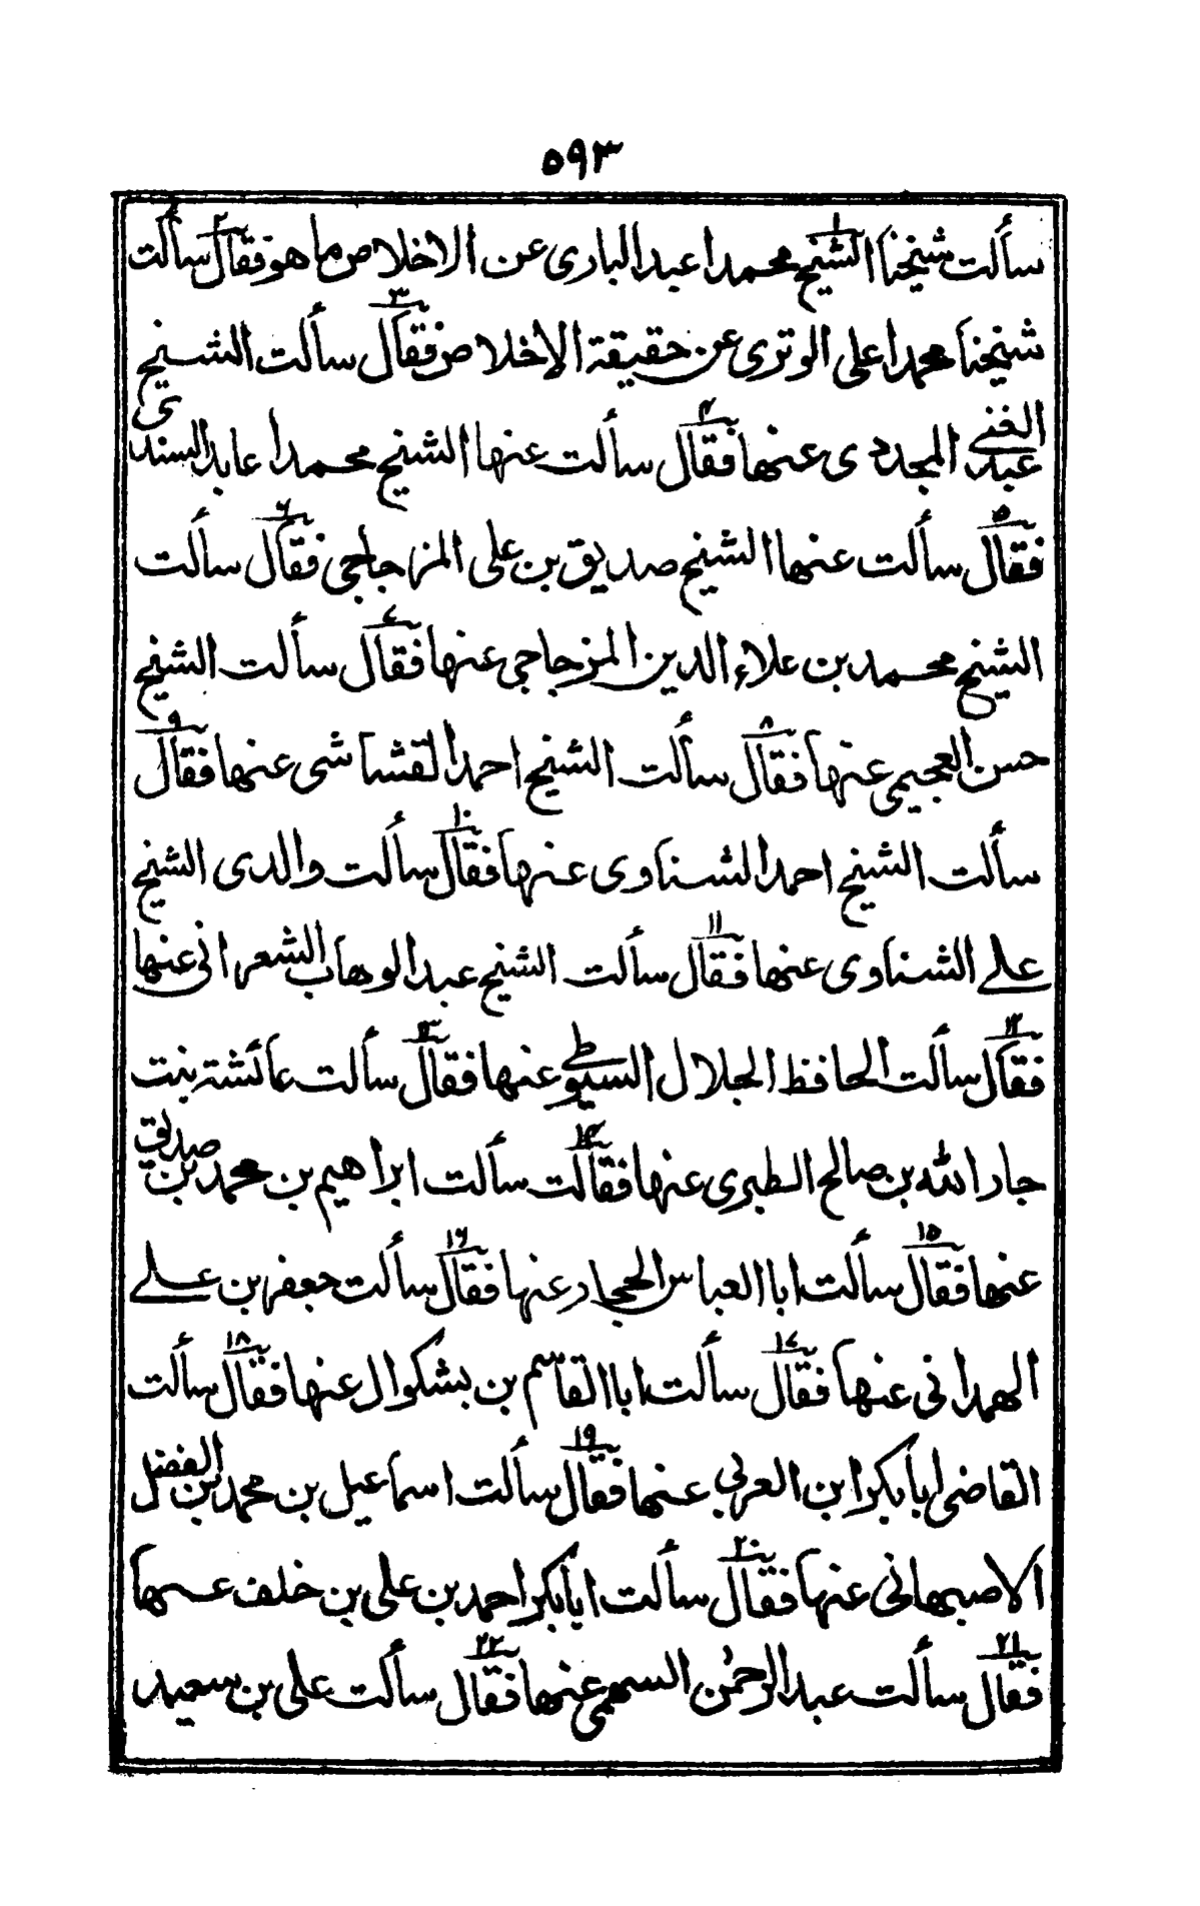 ٥٩٣
سألت شيخنا الشيخ محمدا عبد الباري عن الاخلاص ما هو فقال سألت
شيخنا محمدا على الوتري عن حقيقة الاخلاص فقال سألت الشيخ
عبد الغني المجددي عنها فقال سألت عنها الشيخ محمدا عابد السندي
فقال سألت عنها الشيخ صديق بن على المزجاجي فقال سألت
الشيخ محمد بن علاء الدين المزجاجي عنها فقال سألت الشيخ
حسن العجيمي عنها فقال سألت الشيخ احمد القشاشي عنها فقال
سألت الشيخ احمد الشناوي عنها فقال سألت والدي الشيخ
علے الشناوي عنها فقال سألت الشيخ عبد الوهاب الشعراني عنها
فقال سألت الحافظ الجلال السيوطے عنها فقال سألت عائشة بنت
جار الله بن صالح الطبري عنها فقالت سألت ابراهيم بن محمد بن صديق
عنها فقال سألت ابا العباس الحجار عنها فقال سألت جعفر بن علے
الهمداني عنها فقال سألت ابا القاسم بن بشكوال عنها فقال سألت
القاضي ابا بكر ابن العربي عنها فقال سألت اسماعيل بن محمد بن الفضل
الاصبهاني عنها فقال سألت ابا بكر احمد بن على بن خلف عنها
فقال سألت عبد الرحمٰن السهمي عنها فقال سألت على بن سعيد